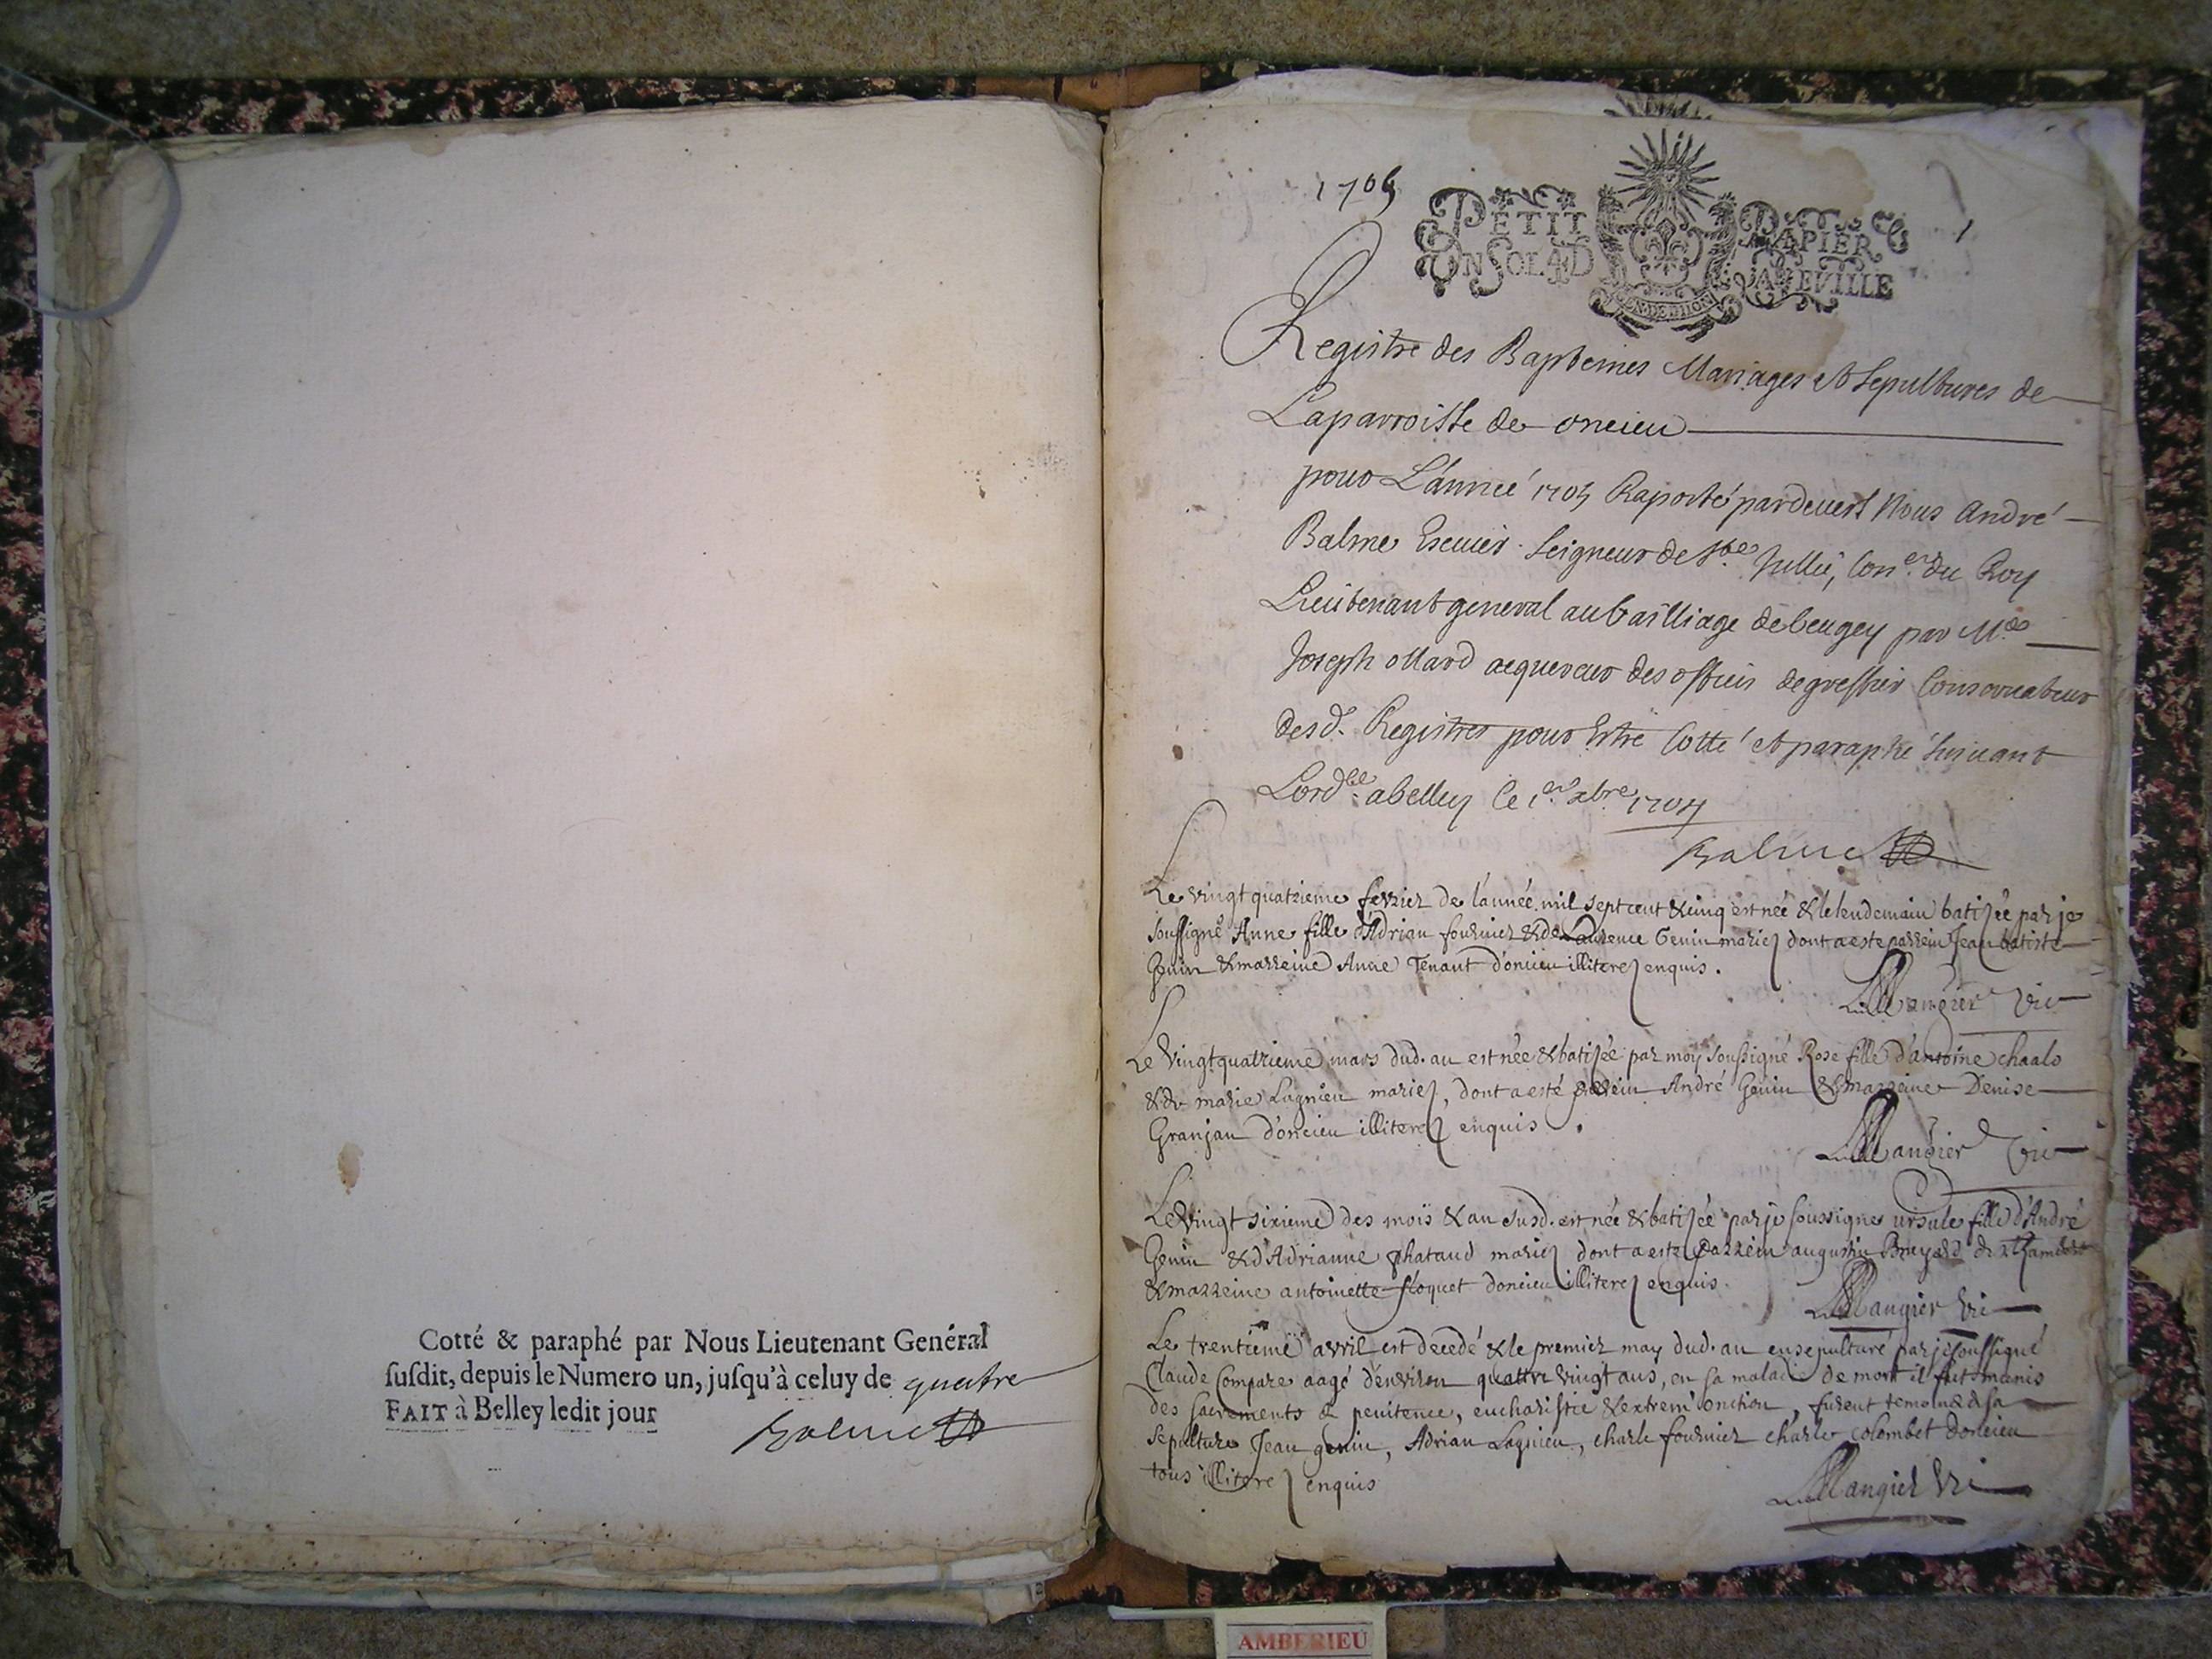 Cotté & paraphé par Nous Lieutenant Genéral
susdit, depuis le Numero un, jusqu'à celuy de quatre
FAIT à Belley ledit jour
Balme
1705
1
PETIT PAPIER
UN SOL A D LA FEUILLE
GEN DE DIION
Registre des Baptemes Mariages et Sepultures de
La parroisse de oncieu
pour L'année 1705 Raporté pardevert Nous André
Balme Escuier Seigneur de Ste Jullie, Coner du Roy
Lieutenant general au bailliage de beugey par Me
Joseph ollard acquereur des offices de greffier Conservateur
desd. Registres pour Estre Cotté et paraphé suivant
Lordce a belley le 1er xbre 1704
Balme
Le vingt quatrieme fevrier de l'année mil sept cent & cinq est née & le lendemain batisée par je
soussigné Anne fille d'Adrian fournier & de Laurence Genin mariez dont a esté parrein Jean batiste
Genin & marreine Anne Tenant d'oncieu illiterez enquis.
Maugier vic
Le vingt quatrieme mars dud. an est née & batisée par moy soussigné Rose fille d'antoine chaalo
& de marie Lagnieu mariez, dont a esté parrein André Genin & marreine Denise
Granjan d'oncieu illiterez enquis.
Maugier vic
Le vingt sixieme des mois & an susd. est née & batisée par je soussigné ursule fille d'André
Genin & d'Adrianne chataud mariez dont a esté parrein augustin Bruyard de st Rambert
& marreine antoinette floquet d'oncieu illiterez enquis.
Maugier vic
Le trentieme avril est decedé & le premier may dud. an ensepulturé par je soussigné
Claude Compare aagé d'environ quattre vingt ans, en sa maladie de mort il fut munis
des sacrements de penitence, eucharistie & extrem'onction, furent temoins à sa
sepulture Jean genin, Adrian Lagnieu, charle fournier charle colombet d'oncieu
tous illiterez enquis
Maugier vic
AMBERIEU